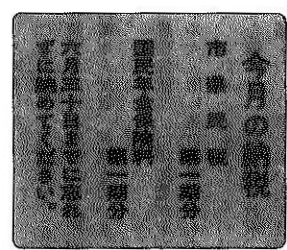 今月の納税
市県民税
第一期分
国民年金保険料
第一期分
六月三十日までに忘れ
ずに納めてください。